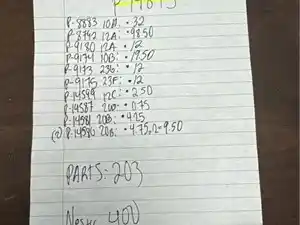 P-14815
P-8883 10A: • 32
P-8792 12A: • 98.50
P-9180 12A: • 12
P-9174 10B: • 19.50
P-9173 23G: • 12
P-9175 23F: • 12
P-14599 12C: • 2.50
P-14587 20B: • 0.75
P-14581 20B: • 4.25
(2) P-14586 20B: • 4.75×2=9.50
PARTS: 203
400